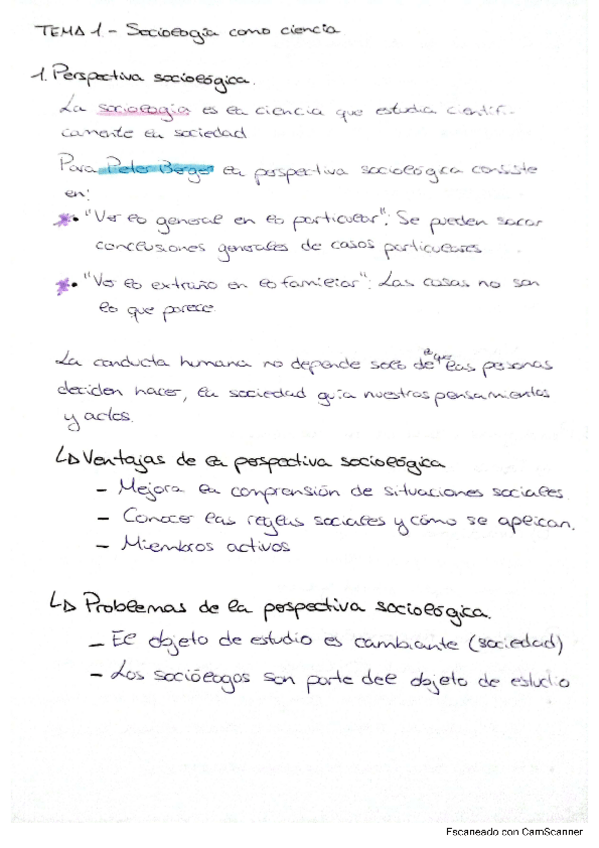 TEMA 1.- Sociología como ciencia
1. Perspectiva sociológica.
La sociología es la ciencia que estudia científi-
camente la sociedad
Para Peter Berger la perspectiva sociológica consiste
en:
• "Ver lo general en lo particular": Se pueden sacar
conclusiones generales de casos particulares
• "Ver lo extraño en lo familiar": Las cosas no son
lo que parece
La conducta humana no depende solo de lo que las personas
deciden hacer, la sociedad guía nuestros pensamientos
y actos.
↳ Ventajas de la perspectiva sociológica
- Mejora la comprensión de situaciones sociales
- Conocer las reglas sociales y cómo se aplican.
- Miembros activos
↳ Problemas de la perspectiva sociológica.
- El objeto de estudio es cambiante (sociedad)
- Los sociólogos son parte del objeto de estudio
Escaneado con CamScanner